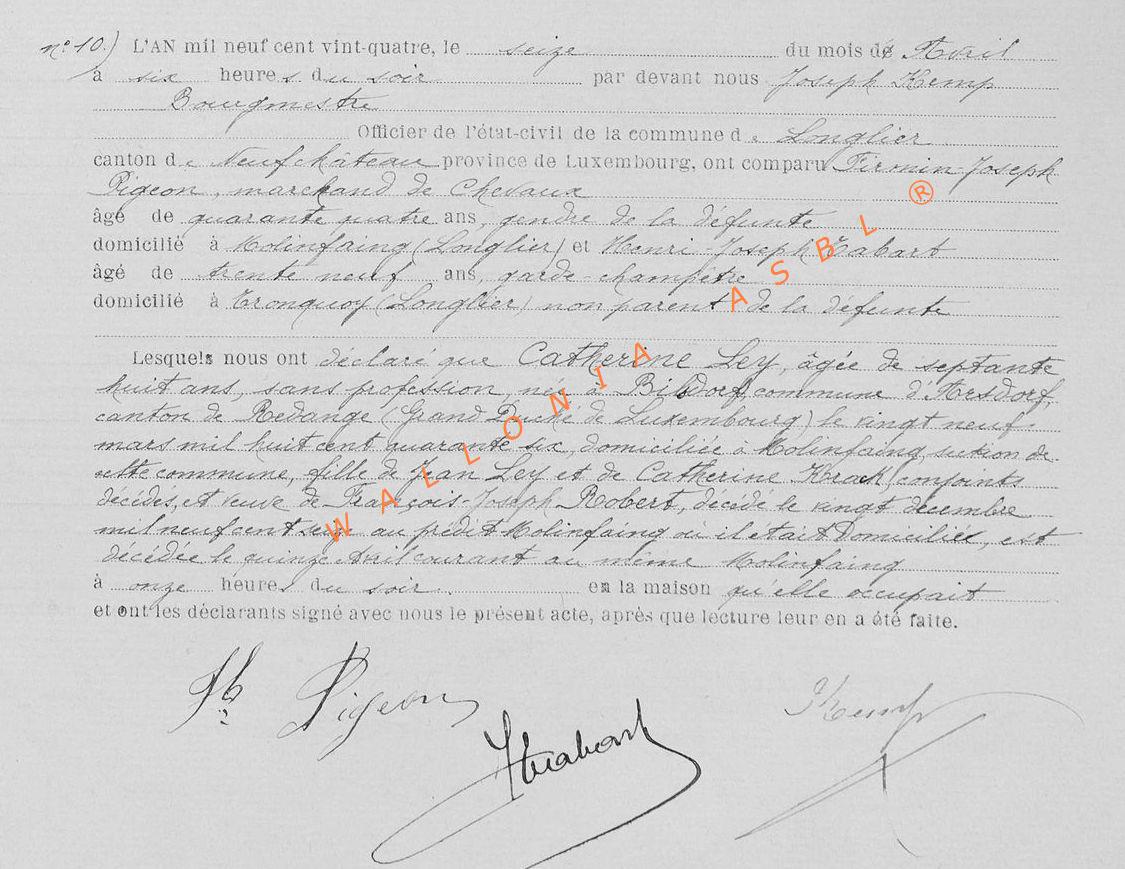 n° 10.) L'AN mil neuf cent vint-quatre, le seize du mois de Avril
à six heures du soir par devant nous Joseph Kemp
Bourgmestre
Officier de l'état-civil de la commune de Longlier
canton de Neufchâteau province de Luxembourg, ont comparu Firmin Joseph
Pigeon, marchand de Chevaux
âgé de quarante quatre ans, gendre de la défunte
domicilié à Molinfaing (Longlier) et Henri-Joseph Tabart
âgé de trente neuf ans, garde-champêtre
domicilié à Tronquoy (Longlier) non parent de la défunte
Lesquels nous ont déclaré que Catherine Ley, âgée de septante
huit ans, sans profession, née à Bilsdorf, commune d'Arsdorf,
canton de Redange (Grand Duché de Luxembourg) le vingt neuf
mars mil huit cent quarante six, domiciliée à Molinfaing, section de
cette commune, fille de Jean Ley et de Catherine Krack, conjoints
décédés, et veuve de François-Joseph Robert, décédé le vingt décembre
mil neuf cent seize au prédit Molinfaing où il était domicilié, est
décédée le quinze avril courant au même Molinfaing
à onze heures du soir. en la maison qu'elle occupait
et ont les déclarants signé avec nous le présent acte, après que lecture leur en a été faite.
Pigeon
Kemp
WALLONIA ASBL ®